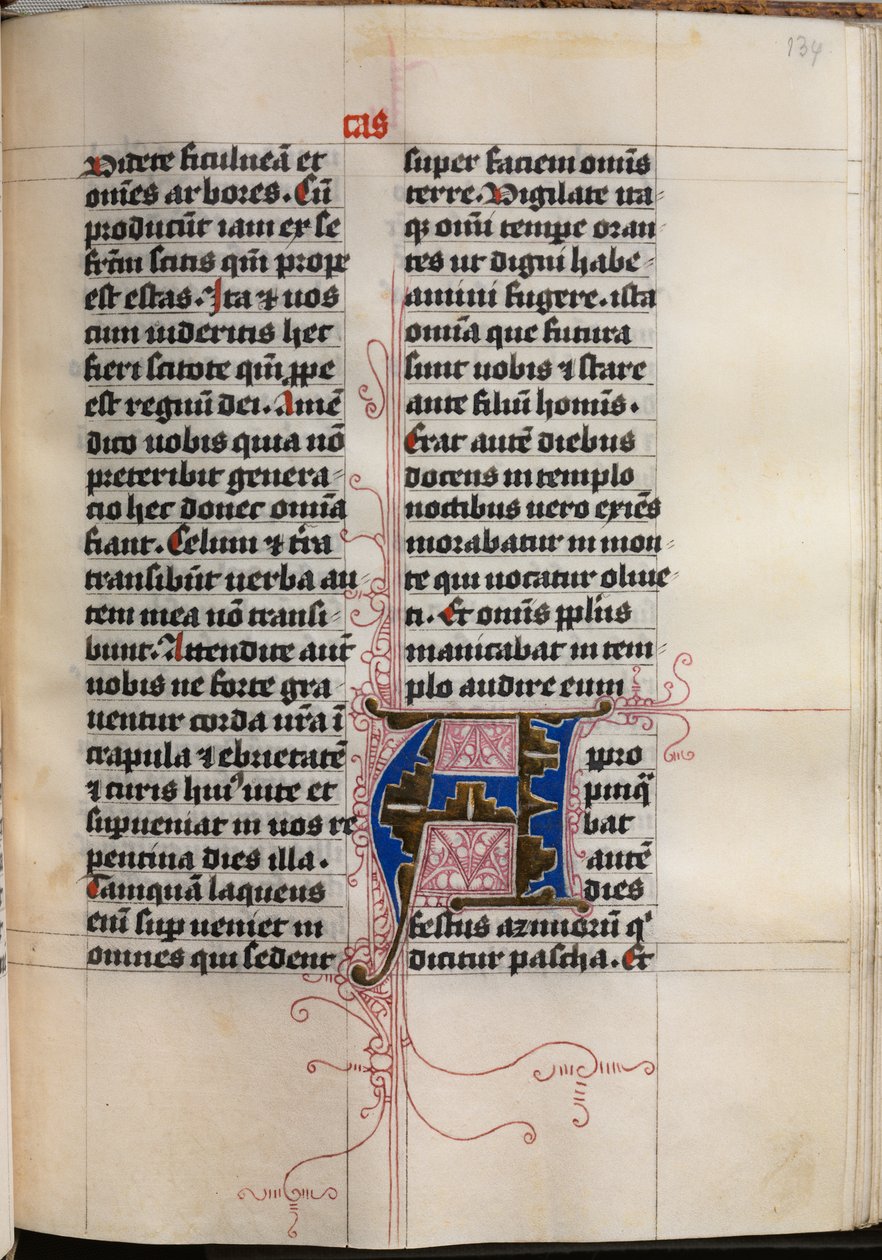 134
cas
Videte ficulneā et
om̄es arbores. Cū
producūt iam ex se
fr̄cm scitis qm̄ prope
est estas. Ita ⁊ uos
cum uideritis hec
fieri scitote qm̄ ꝓpe
est regnū dei. Amē
dico uobis quia nō
preteribit genera-
cio hec donec om̄ia
fiant. Celum ⁊ t̄ra
transibūt uerba au-
tem mea nō transi-
bunt. Attendite aut̄
uobis ne forte gra-
uentur corda ur̄a ī
crapula ⁊ ebrietatē
⁊ curis huiꝰ uite et
suꝑueniat in uos re
pentina dies illa.
Tamquā laqueus
enī suꝑ ueniet in
omnes qui sedent
super faciem om̄is
terre. Vigilate ita-
qꝫ omī tempe oran-
tes ut digni habe-
amini fugere. ista
om̄ia que futura
sunt uobis ⁊ stare
ante filiū homīs.
Erat autē diebus
docens in templo
noctibus uero exiēs
morabatur in mon-
te qui uocatur oliue-
ti. Et om̄is ppl̄us
manicabat in tem-
plo audire eum
A ꝓpro
pinqᵃ
bat
autē
dies
festus azimorū qⁱ
dicitur pascha. Et